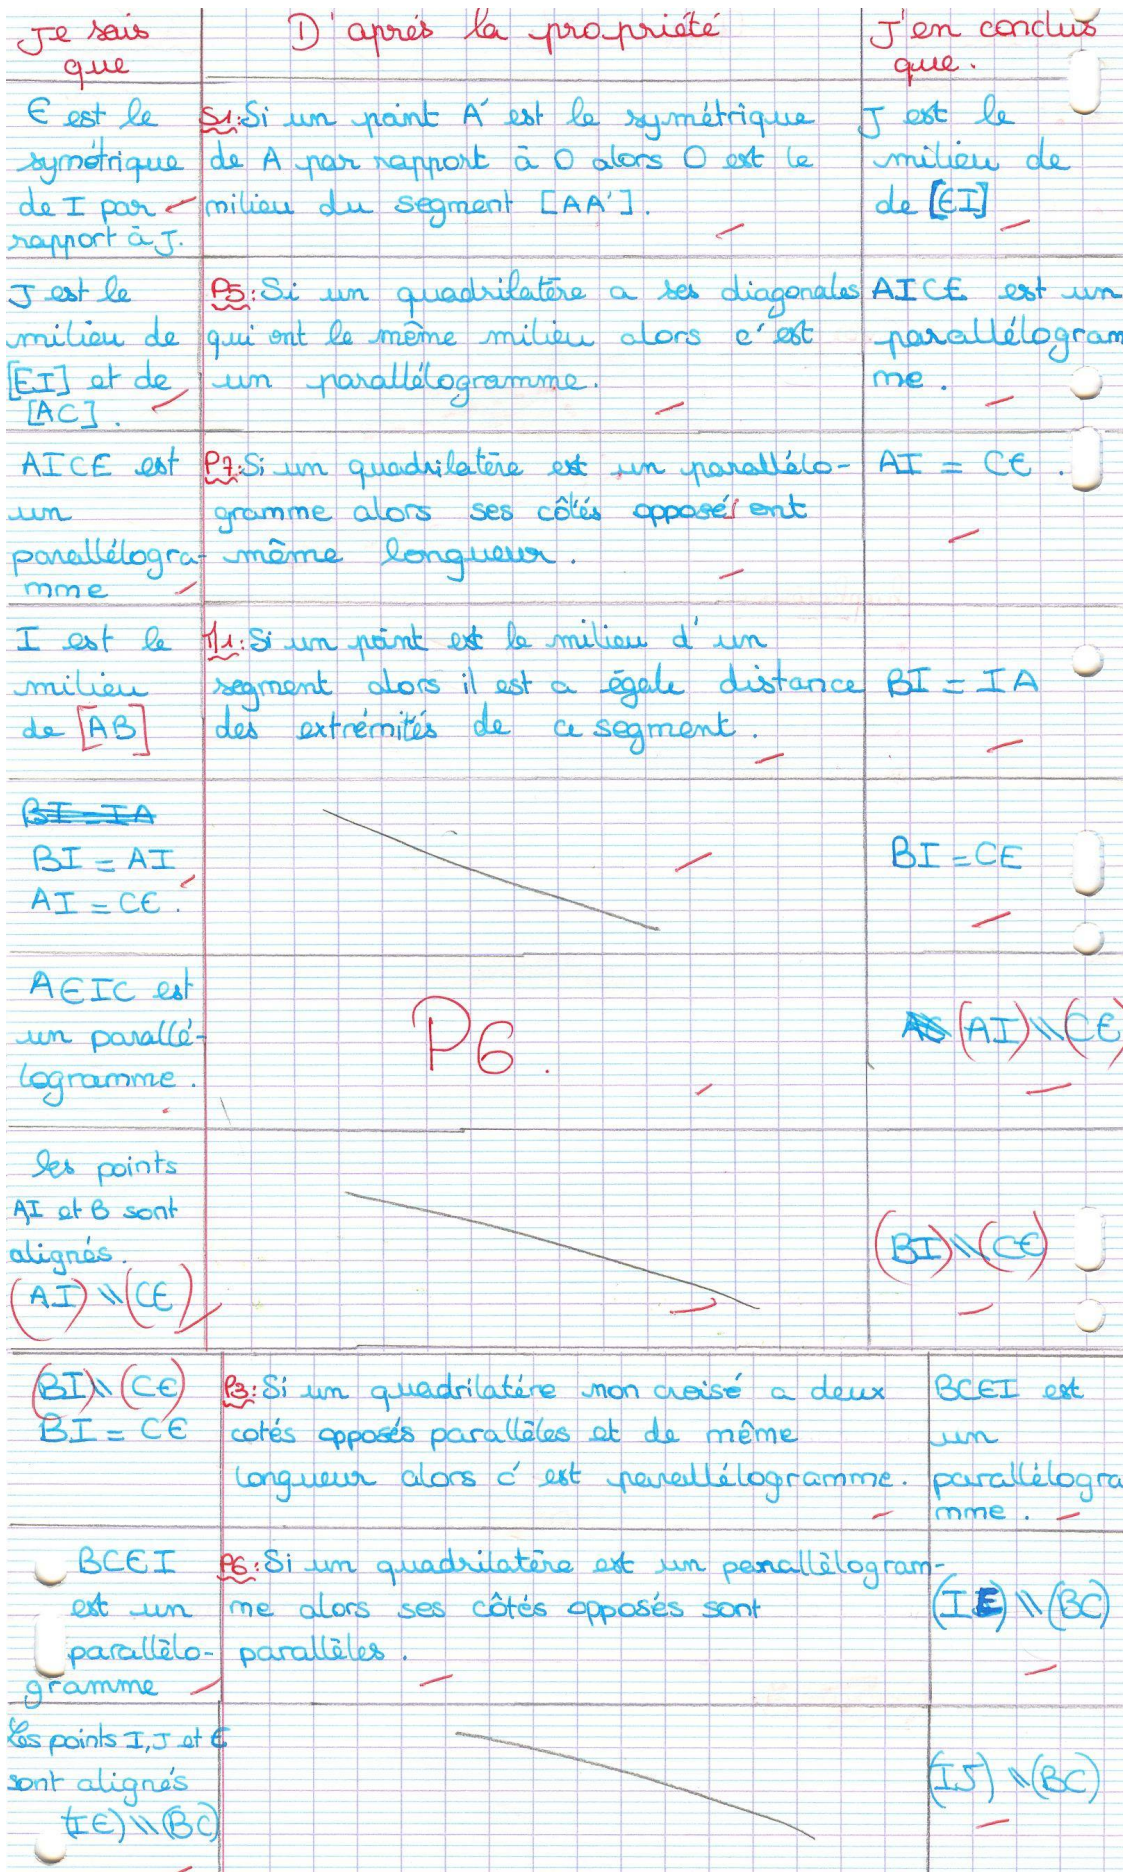 Je sais que
D'aprés la propriété
J'en conclus que.
E est le
symétrique
de I par
rapport à J.
S1: Si un point A' est le symétrique
de A par rapport à O alors O est le
milieu du segment [AA'].
J est le
milieu de
de [EI]
J est le
milieu de
[EI] et de
[AC].
P5: Si un quadrilatère a ses diagonales
qui ont le même milieu alors c'est
un parallélogramme.
AICE est un
parallélogram
me.
AICE est
un
parallélogra-
mme
P7: Si un quadrilatère est un parallélo-
gramme alors ses côtés opposés ont
même longueur.
AI = CE.
I est le
milieu
de [AB]
M1: Si un point est le milieu d'un
segment alors il est a égale distance
des extrémités de ce segment.
BI = IA
BI = IA
BI = AI
AI = CE.
BI = CE
AEIC est
un parallé-
logramme.
P6.
(AI) \\ (CE)
les points
A,I et B sont
alignés.
(AI) \\ (CE)
(BI) \\ (CE)
(BI) \\ (CE)
BI = CE
P3: Si un quadrilatére non croisé a deux
cotés opposés parallèles et de même
longueur alors c'est parallélogramme.
BCEI est
un
parallélogra
mme.
BCEI
est un
parallélo-
gramme
P6: Si un quadrilatère est un parallélogram-
me alors ses côtés opposés sont
parallèles.
(IE) \\ (BC)
Les points I, J et E
sont alignés
(IE) \\ (BC)
(IJ) \\ (BC)